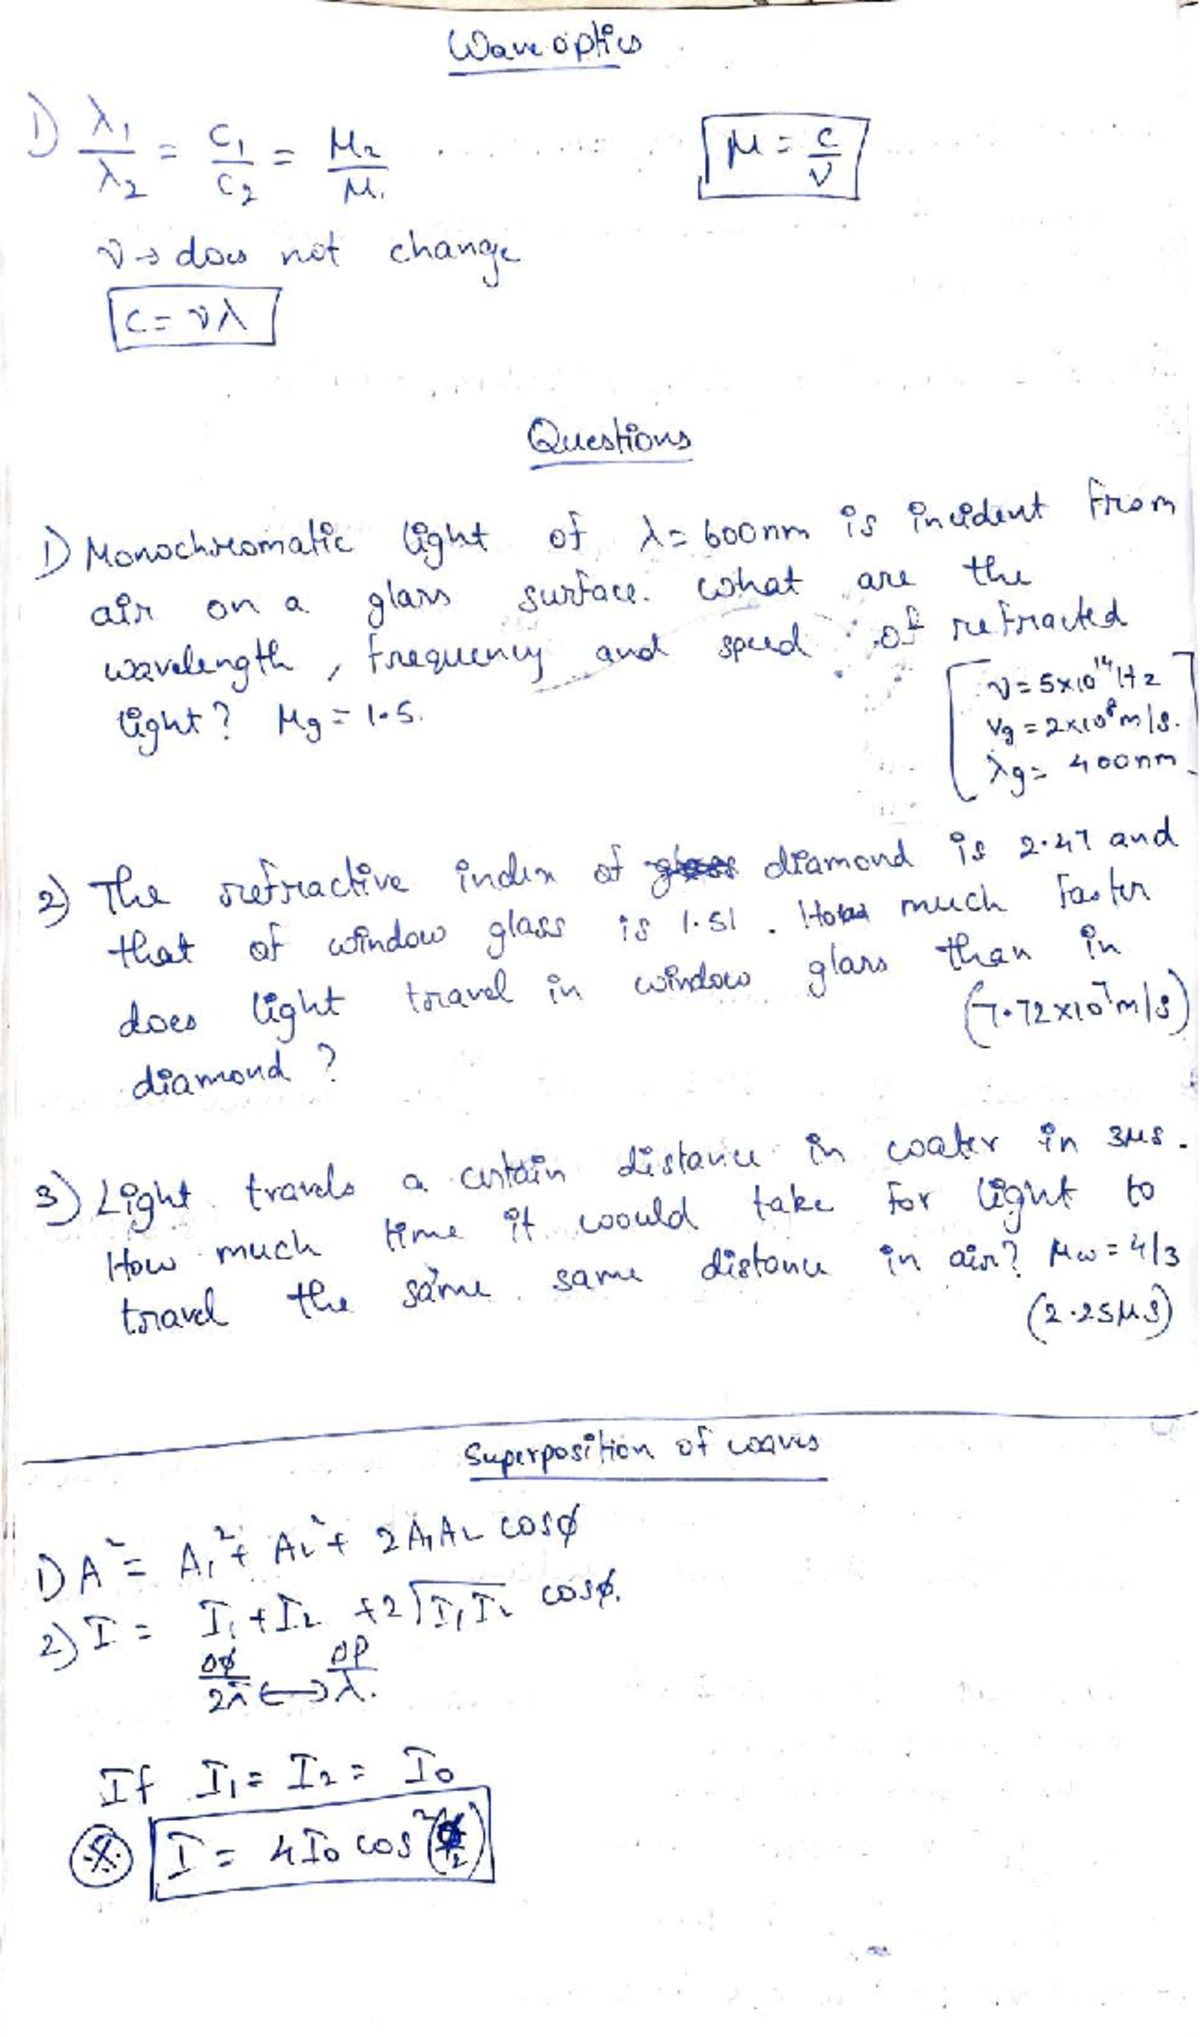 Wave optics
1) λ₁/λ₂ = C₁/C₂ = μ₂/μ₁ μ = c/v
ν → does not change
c = νλ
Questions
1) Monochromatic light of λ = 600nm is incident from
air on a glass surface. What are the
wavelength, frequency and speed of refracted
light? μg = 1.5.
ν = 5×10¹⁴ Hz
vg = 2×10⁸ m/s.
λg = 400nm
2) The refractive index of diamond is 2.47 and
that of window glass is 1.51. How much faster
does light travel in window glass than in
diamond? (7.72×10⁷ m/s)
3) Light travels a certain distance in water in 3μs.
How much time it would take for light to
travel the same same distance in air? μw = 4/3
(2.25μS)
Superposition of waves
1) A² = A₁² + A₂² + 2A₁A₂ cosφ
2) I = I₁ + I₂ + 2√I₁I₂ cosφ.
Δφ/2π ↔ Δp/λ.
If I₁ = I₂ = I₀
I = 4I₀ cos²(φ/2)